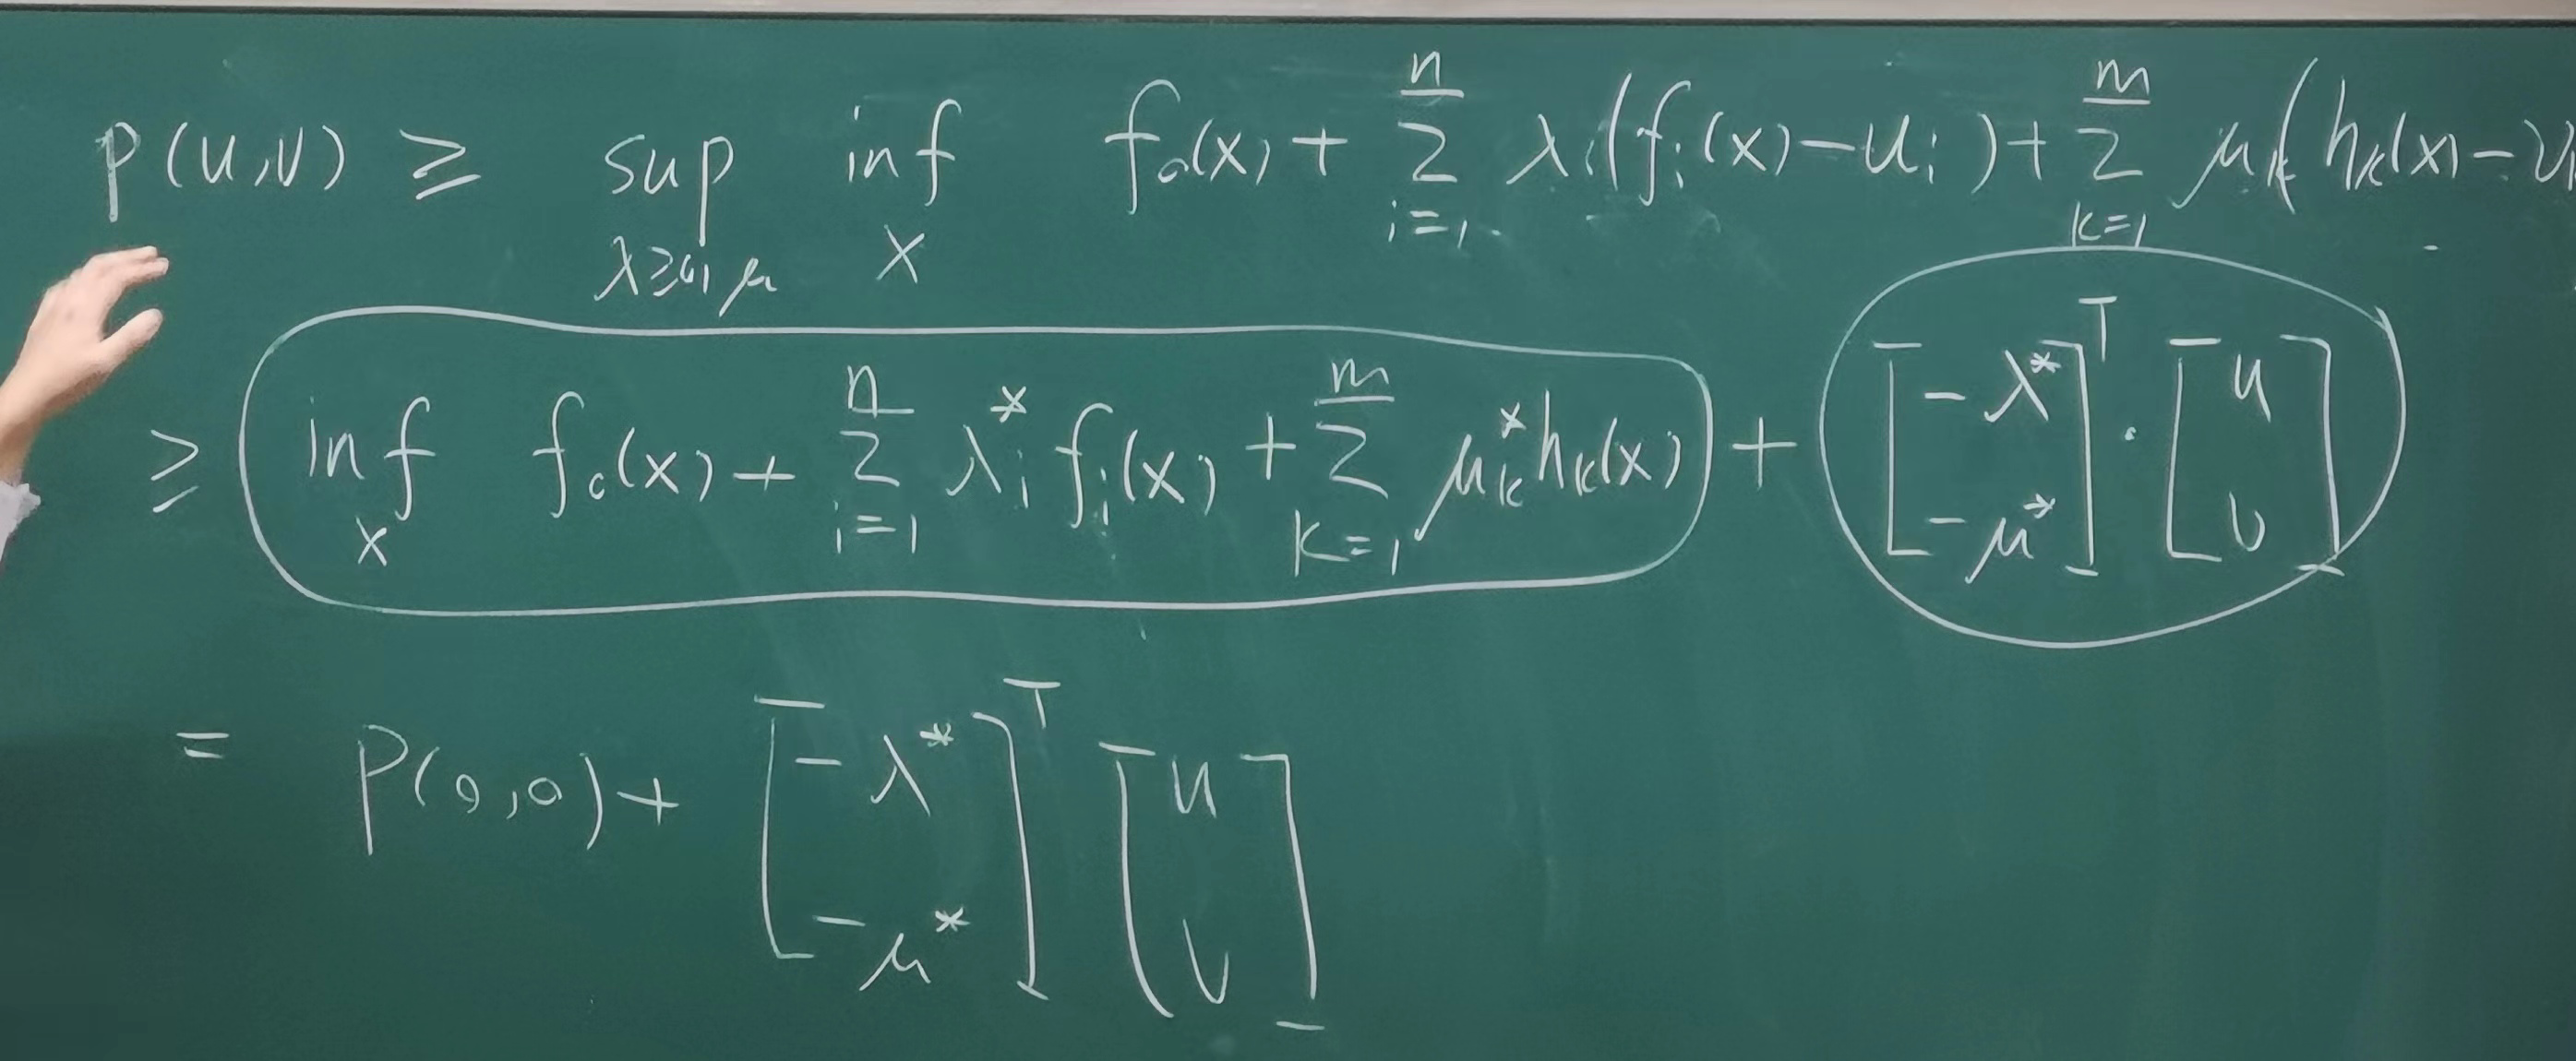 P(u,v) ≥ sup_{λ≥0,μ} inf_x f_0(x) + Σ_{i=1}^{n} λ_i(f_i(x) - u_i) + Σ_{k=1}^{m} μ_k(h_k(x) - v_k
≥ inf_x f_0(x) + Σ_{i=1}^{n} λ_i^* f_i(x) + Σ_{k=1}^{m} μ_k^* h_k(x) + [-λ^* ; -μ^*]^T · [u ; v]
= P(0,0) + [-λ^* ; -μ^*]^T [u ; v]